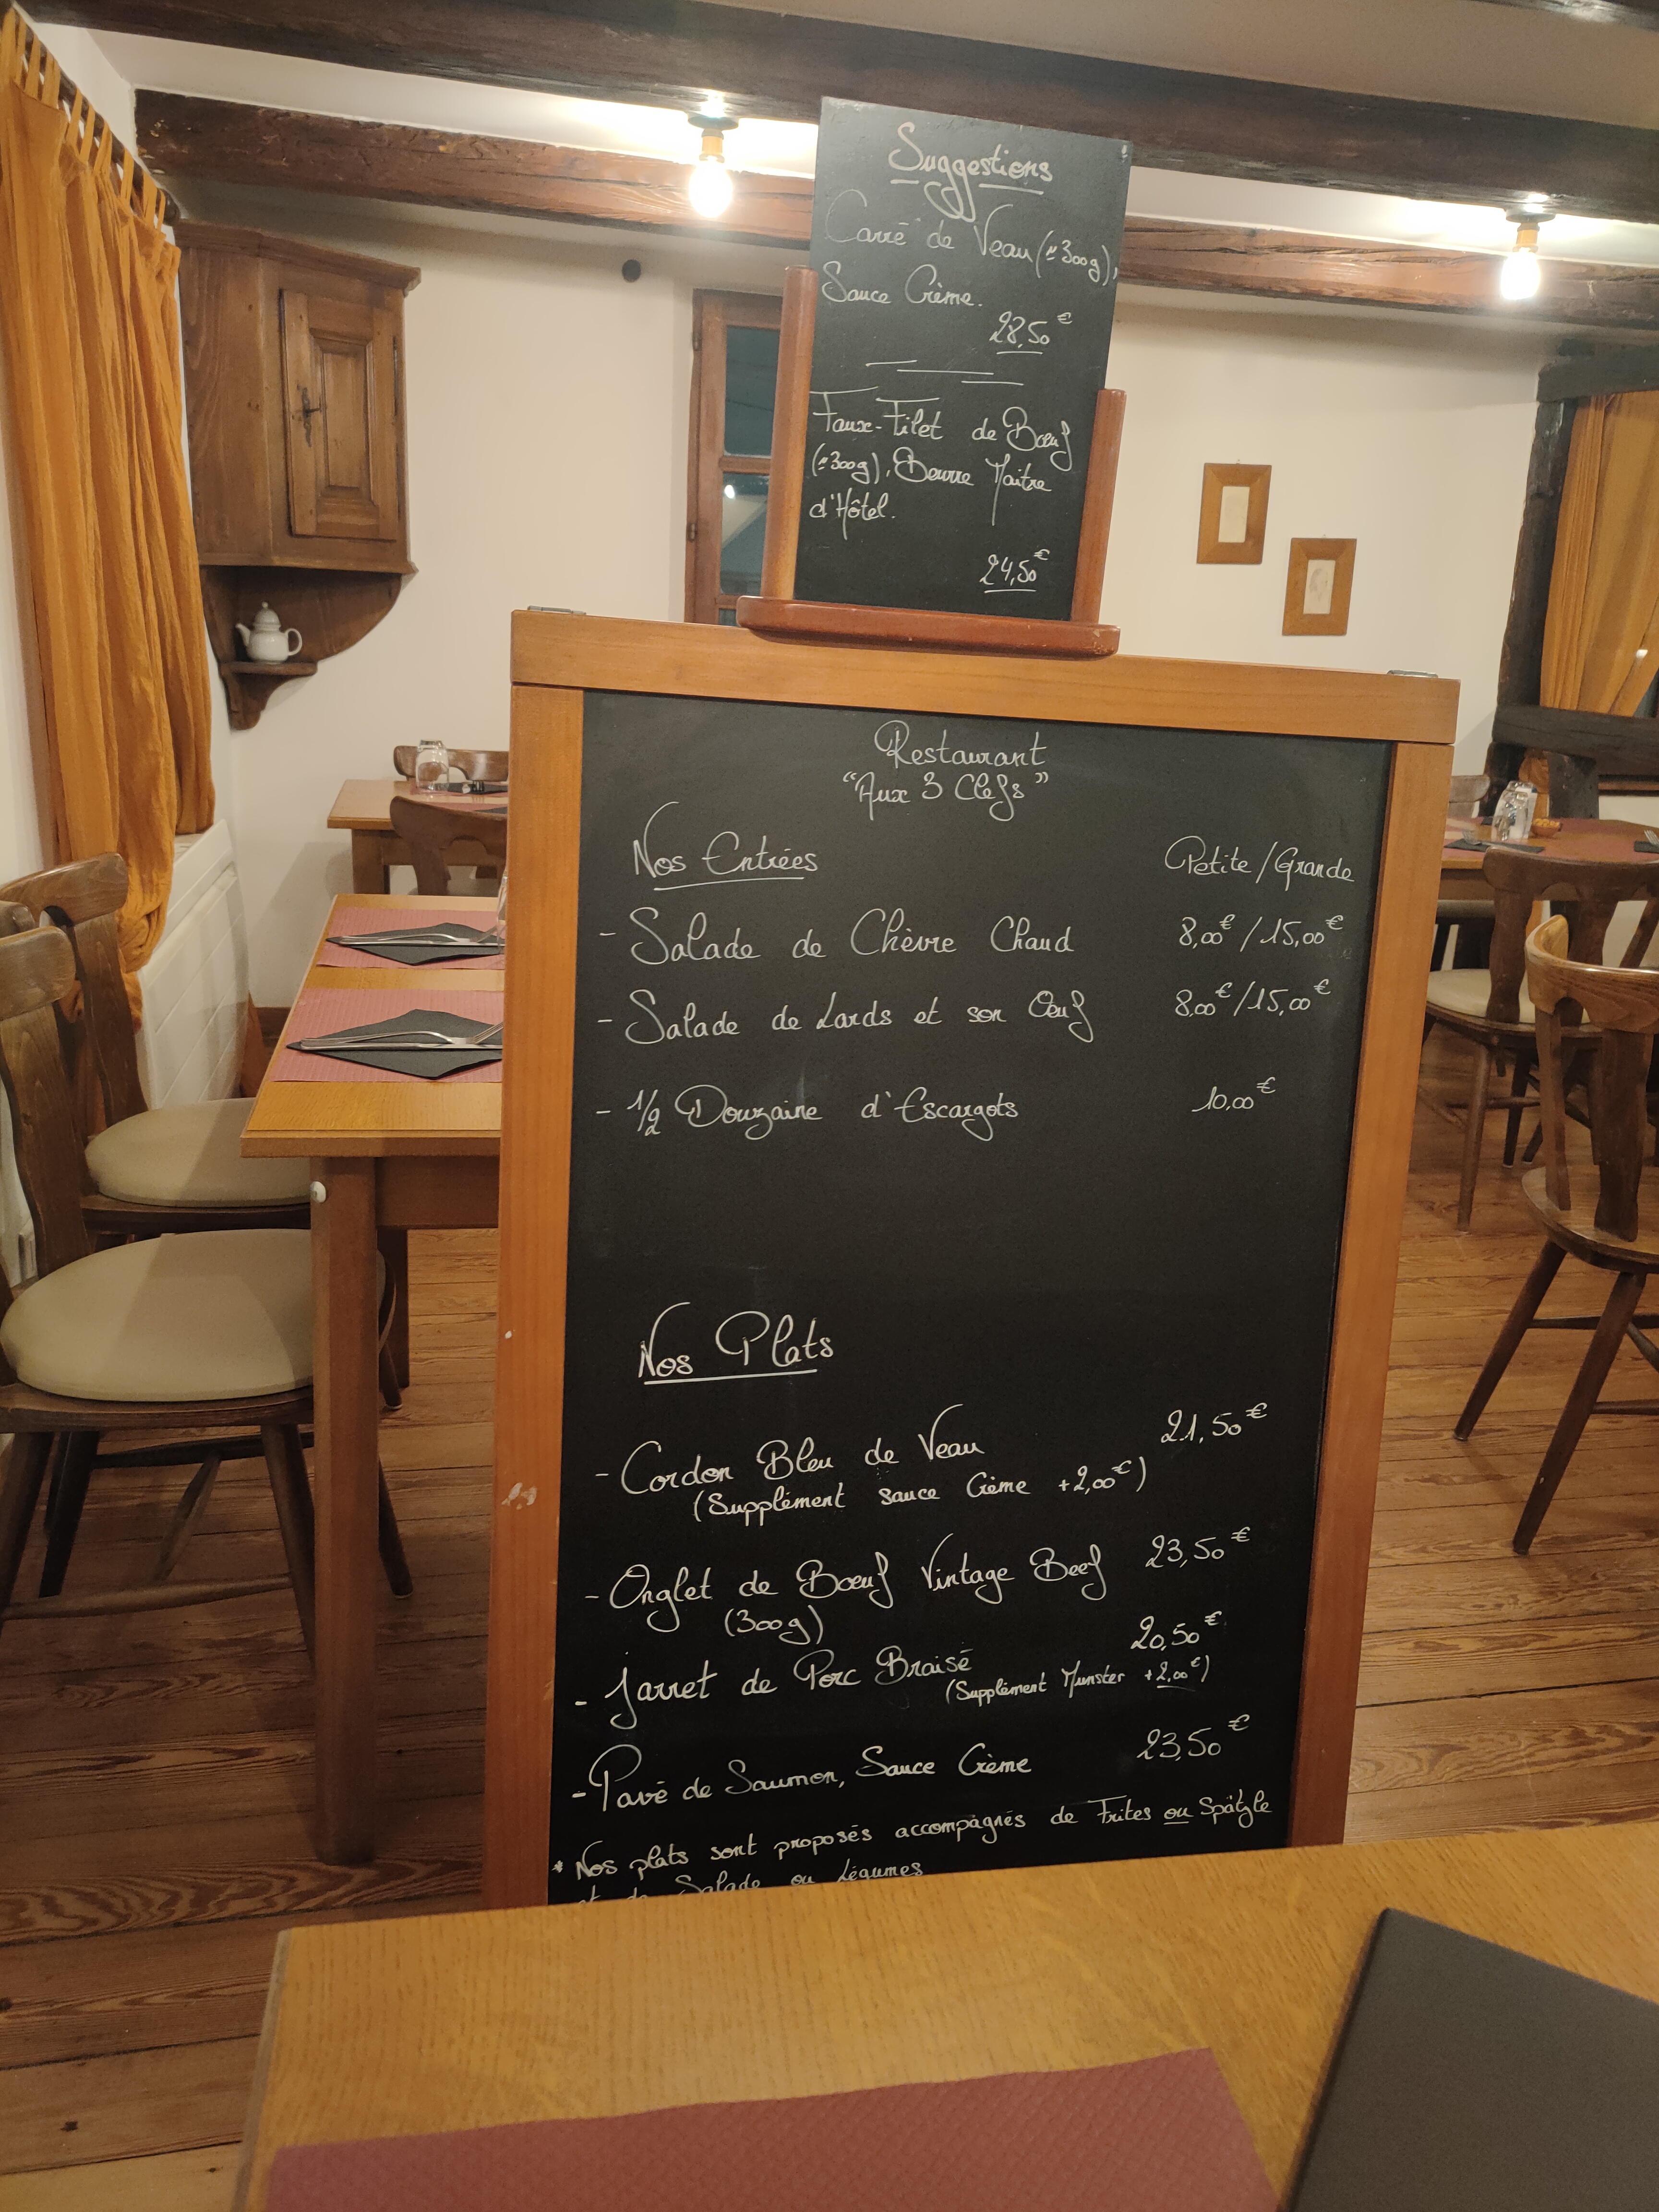 Suggestions
Carré de Veau (≃300g),
Sauce Crème.
28,50€
Faux-Filet de Bœuf
(≃300g), Beurre Maitre
d'Hôtel.
24,50€
Restaurant
"Aux 3 Clefs"
Nos Entrées Petite/Grande
- Salade de Chèvre Chaud 8,00€/15,00€
- Salade de Lards et son Œuf 8,00€/15,00€
- 1/2 Douzaine d'Escargots 10,00€
Nos Plats
- Cordon Bleu de Veau 21,50€
(Supplément sauce Crème +2,00€)
- Onglet de Bœuf Vintage Beef 23,50€
(300g)
- Jarret de Porc Braisé 20,50€
(Supplément Munster +2,00€)
- Pavé de Saumon, Sauce Crème 23,50€
* Nos plats sont proposés accompagnés de Frites ou Spätzle
et de Salade ou Légumes